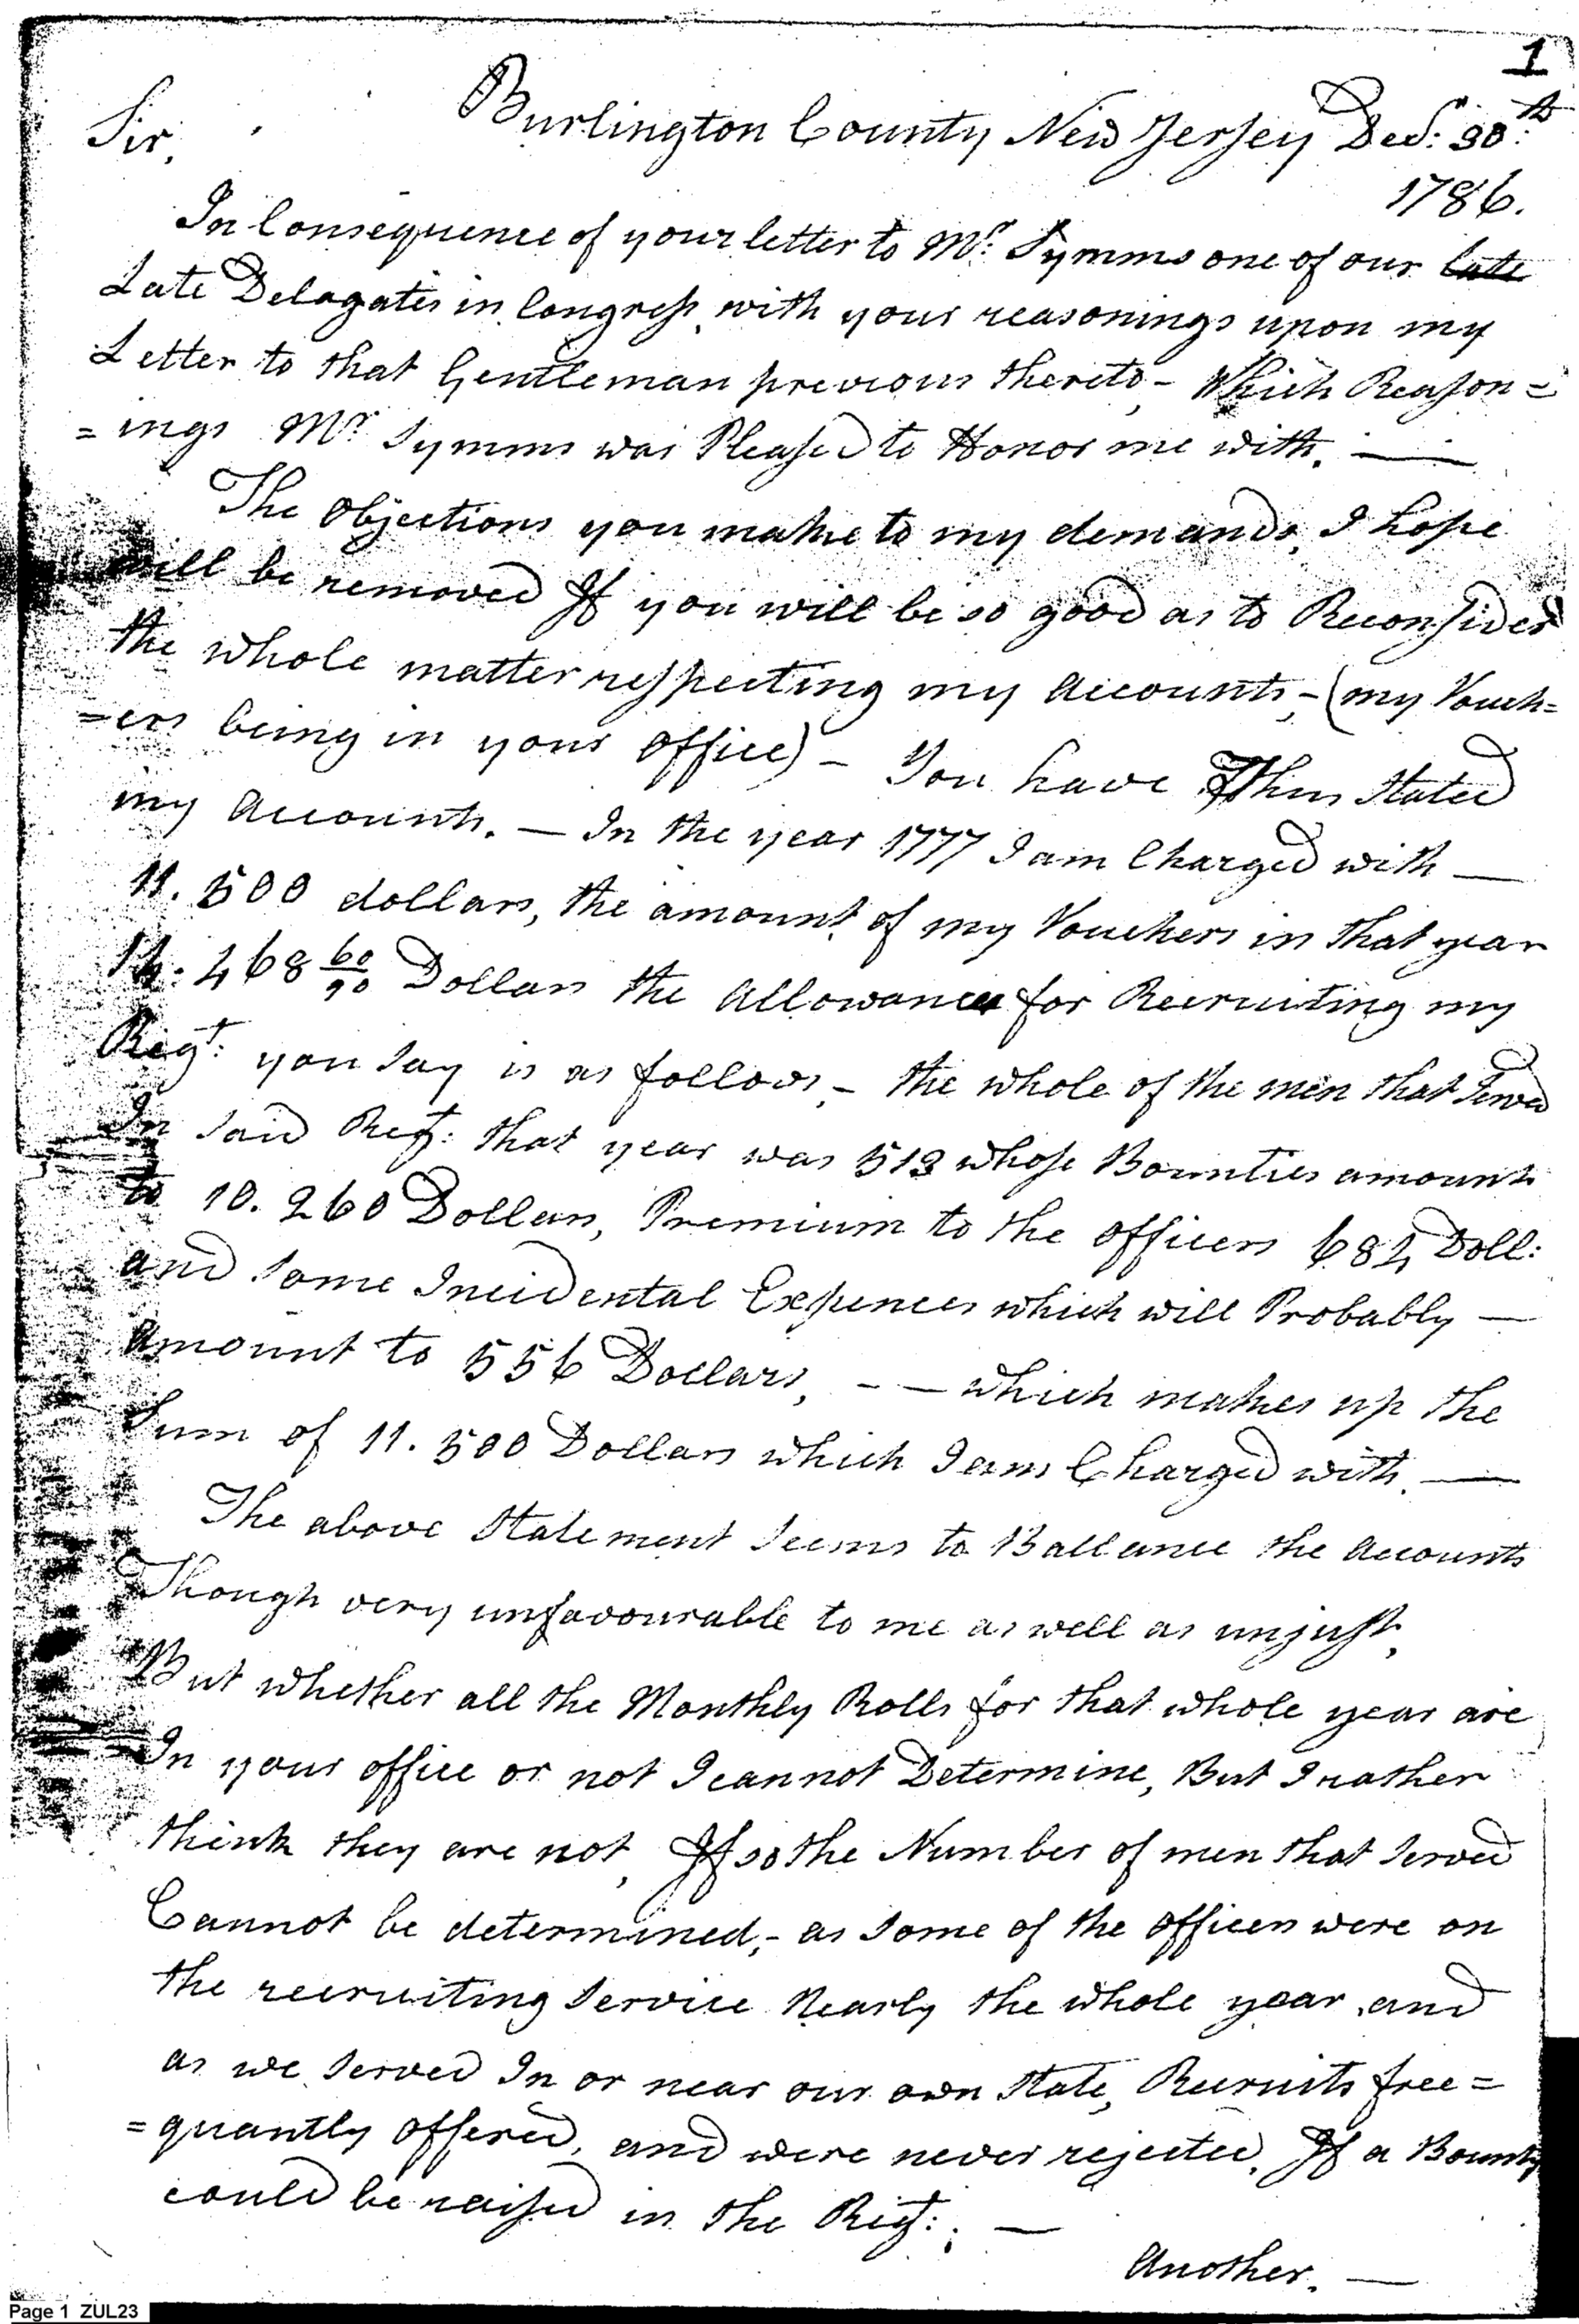 1
Burlington County New Jersey Decr: 30th
Sir,
1786.
In Consequence of your letter to Mr: Symms one of our late
Late Delagates in Congress, with your reasonings upon my
Letter to that Gentleman previous thereto,- Which Reason=
=ings Mr Symms was Pleased to Honor me with. —
The Objections you make to my demands, I hope
will be removed If you will be so good as to Reconsider
the whole matter respecting my Accounts,-(my Vouch=
=ers being in your Office) - You have Thus Stated
my Accounts. — In the year 1777 I am Charged with —
11.500 dollars, the amount of my Vouchers in that year
14.468 60/90 Dollars the Allowance for Recruiting my
Regt: you Say is as follows,- the whole of the men that Served
In Said Regt: that year was 513 whose Bounties amounts
to 10.260 Dollars, Premium to the Officers 684 Doll:
and Some Incidental Expences which will Probably —
Amount to 556 Dollars, - — which makes up the
Sum of 11.500 Dollars which I am Charged with. —
The above Statement Seems to Ballance the Accounts
Though very unfavourable to me as well as unjust,
But whether all the Monthly Rolls for that whole year are
In your office or not I cannot Determine, But I rather
think they are not, If so the Number of men that Served
Cannot be determined,- as Some of the Officers were on
the recruiting Service Nearly the whole year, and
as we Served In or near our own State, Recruits free=
=quantly Offered, and were never rejected, If a Bounty
could be raised in the Regt:; —
Another. —
Page 1 ZUL23